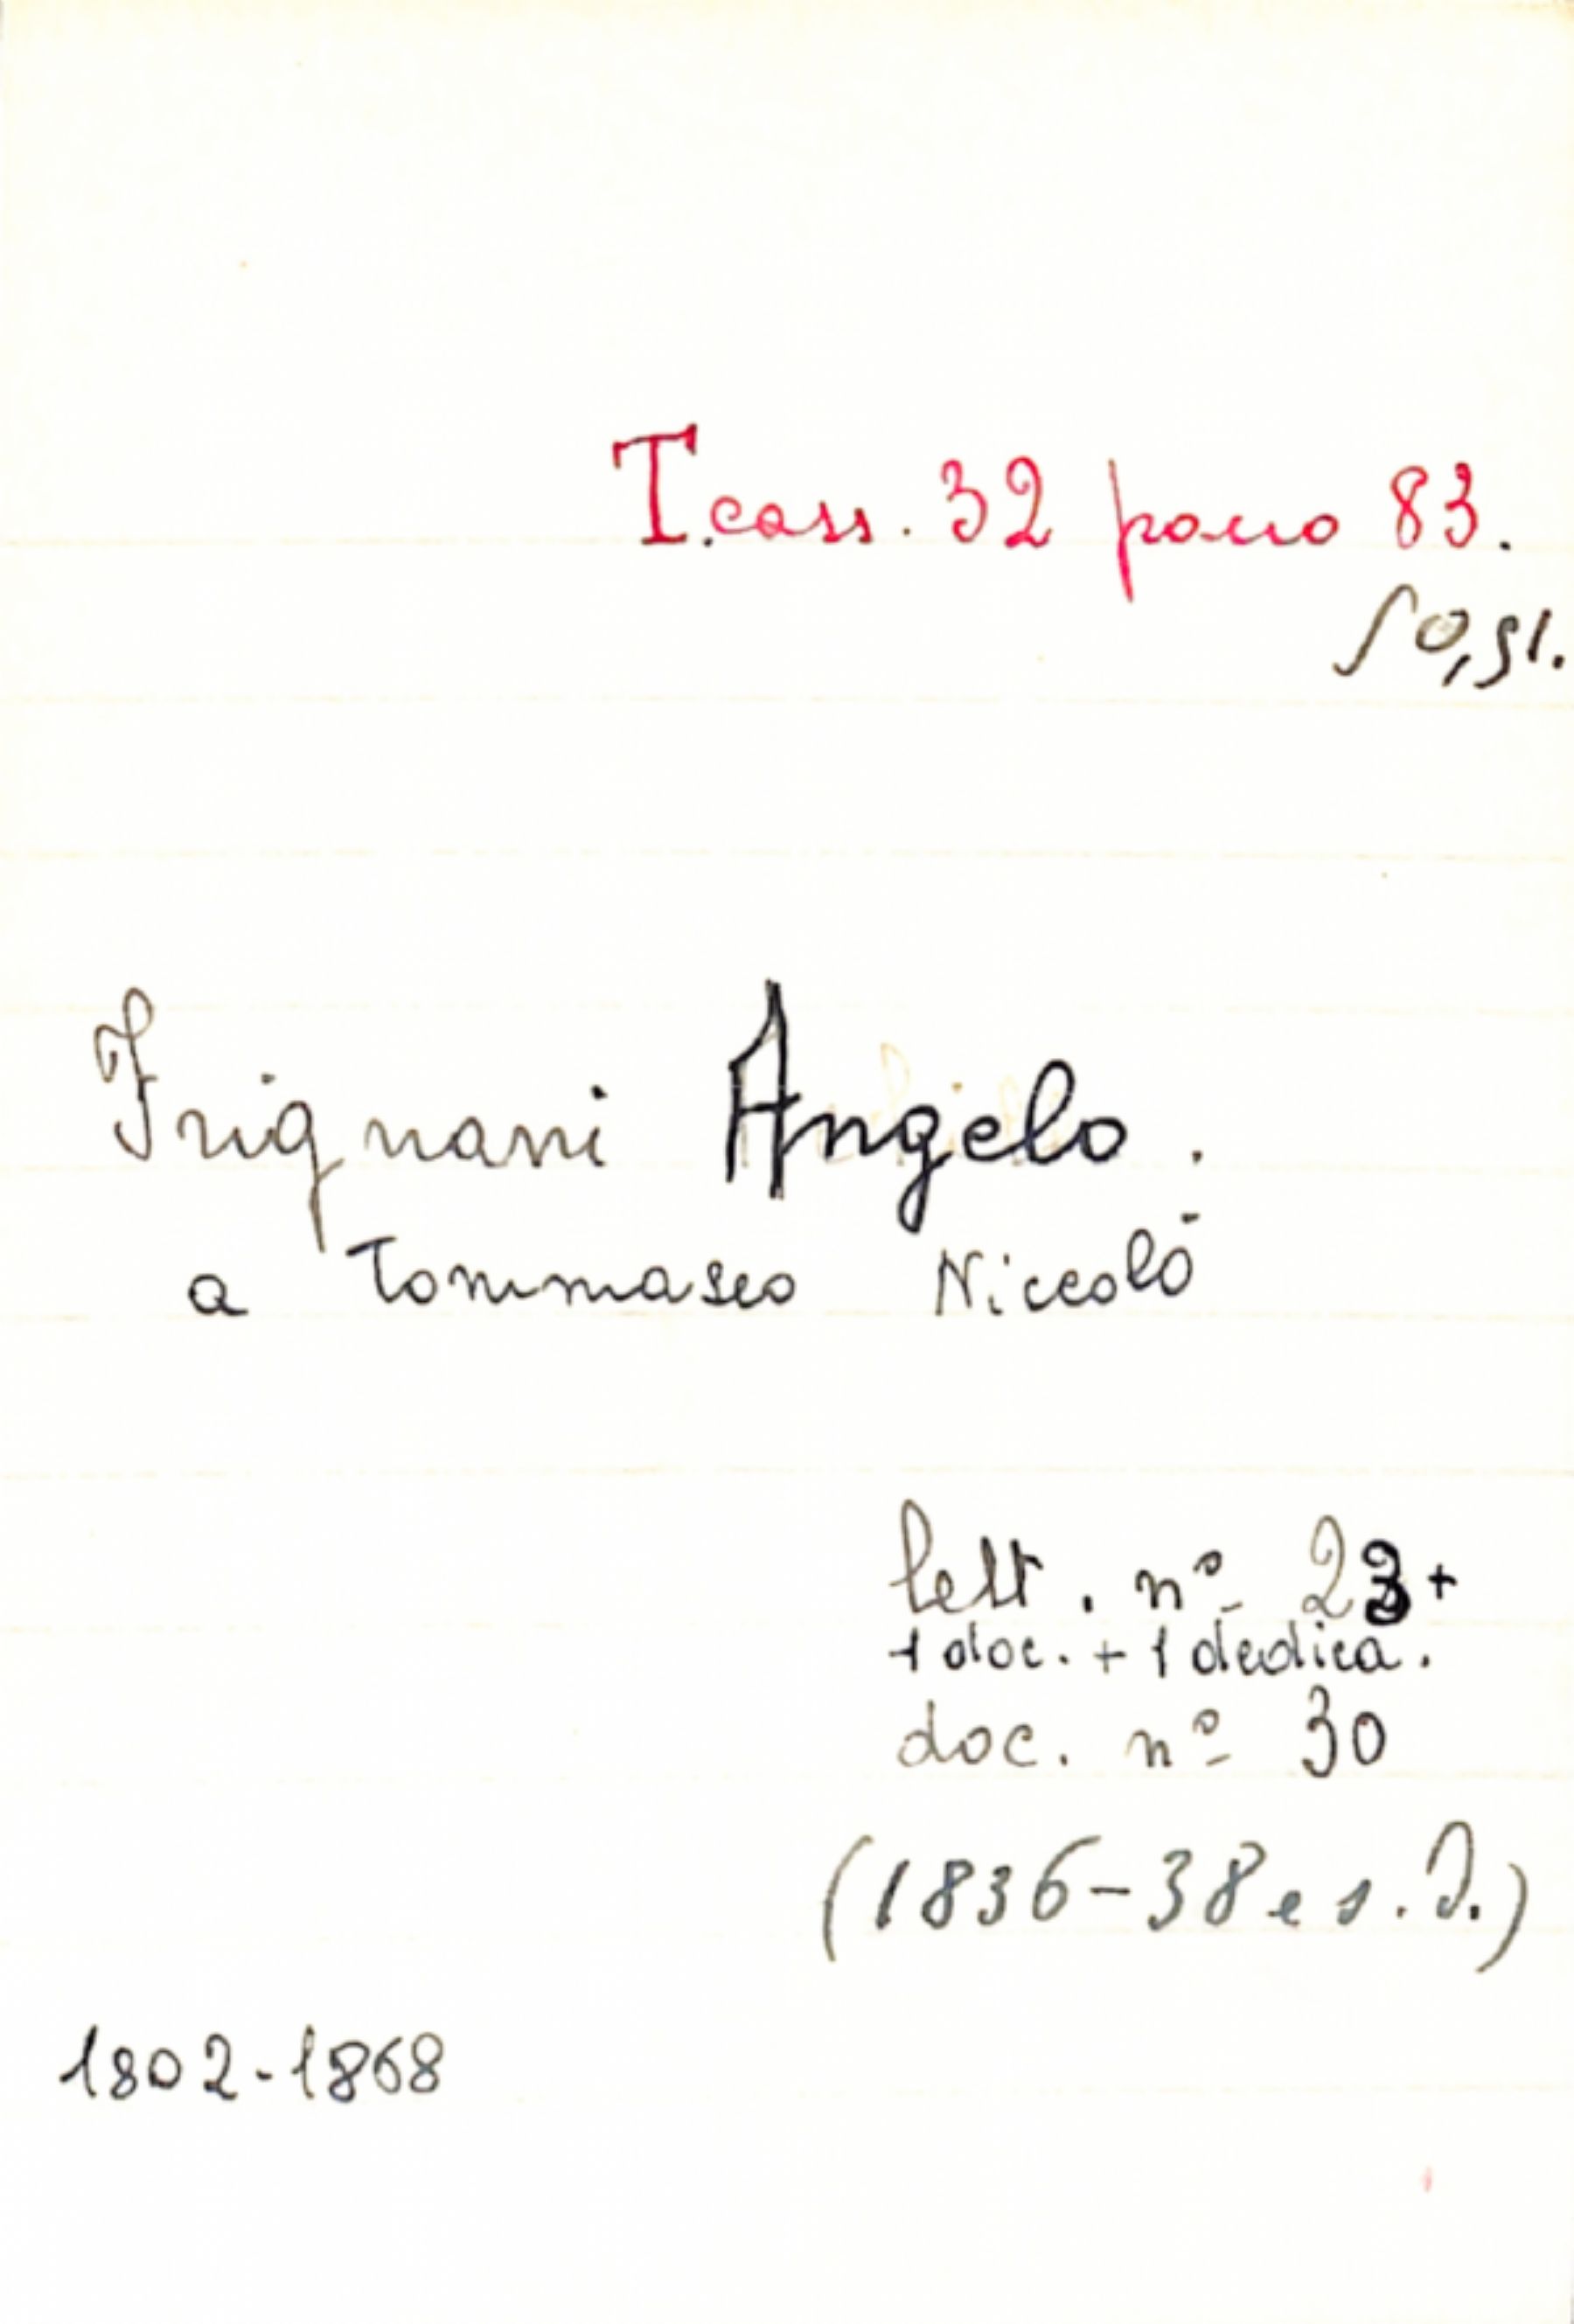 T.cass. 32 pacco 83.
50,51.
Frignani Angelo.
a Tommaseo Niccolò
lett. nº 23+
1 doc. + 1 dedica.
doc. nº 30
(1836-38 e s.d.)
1802-1868